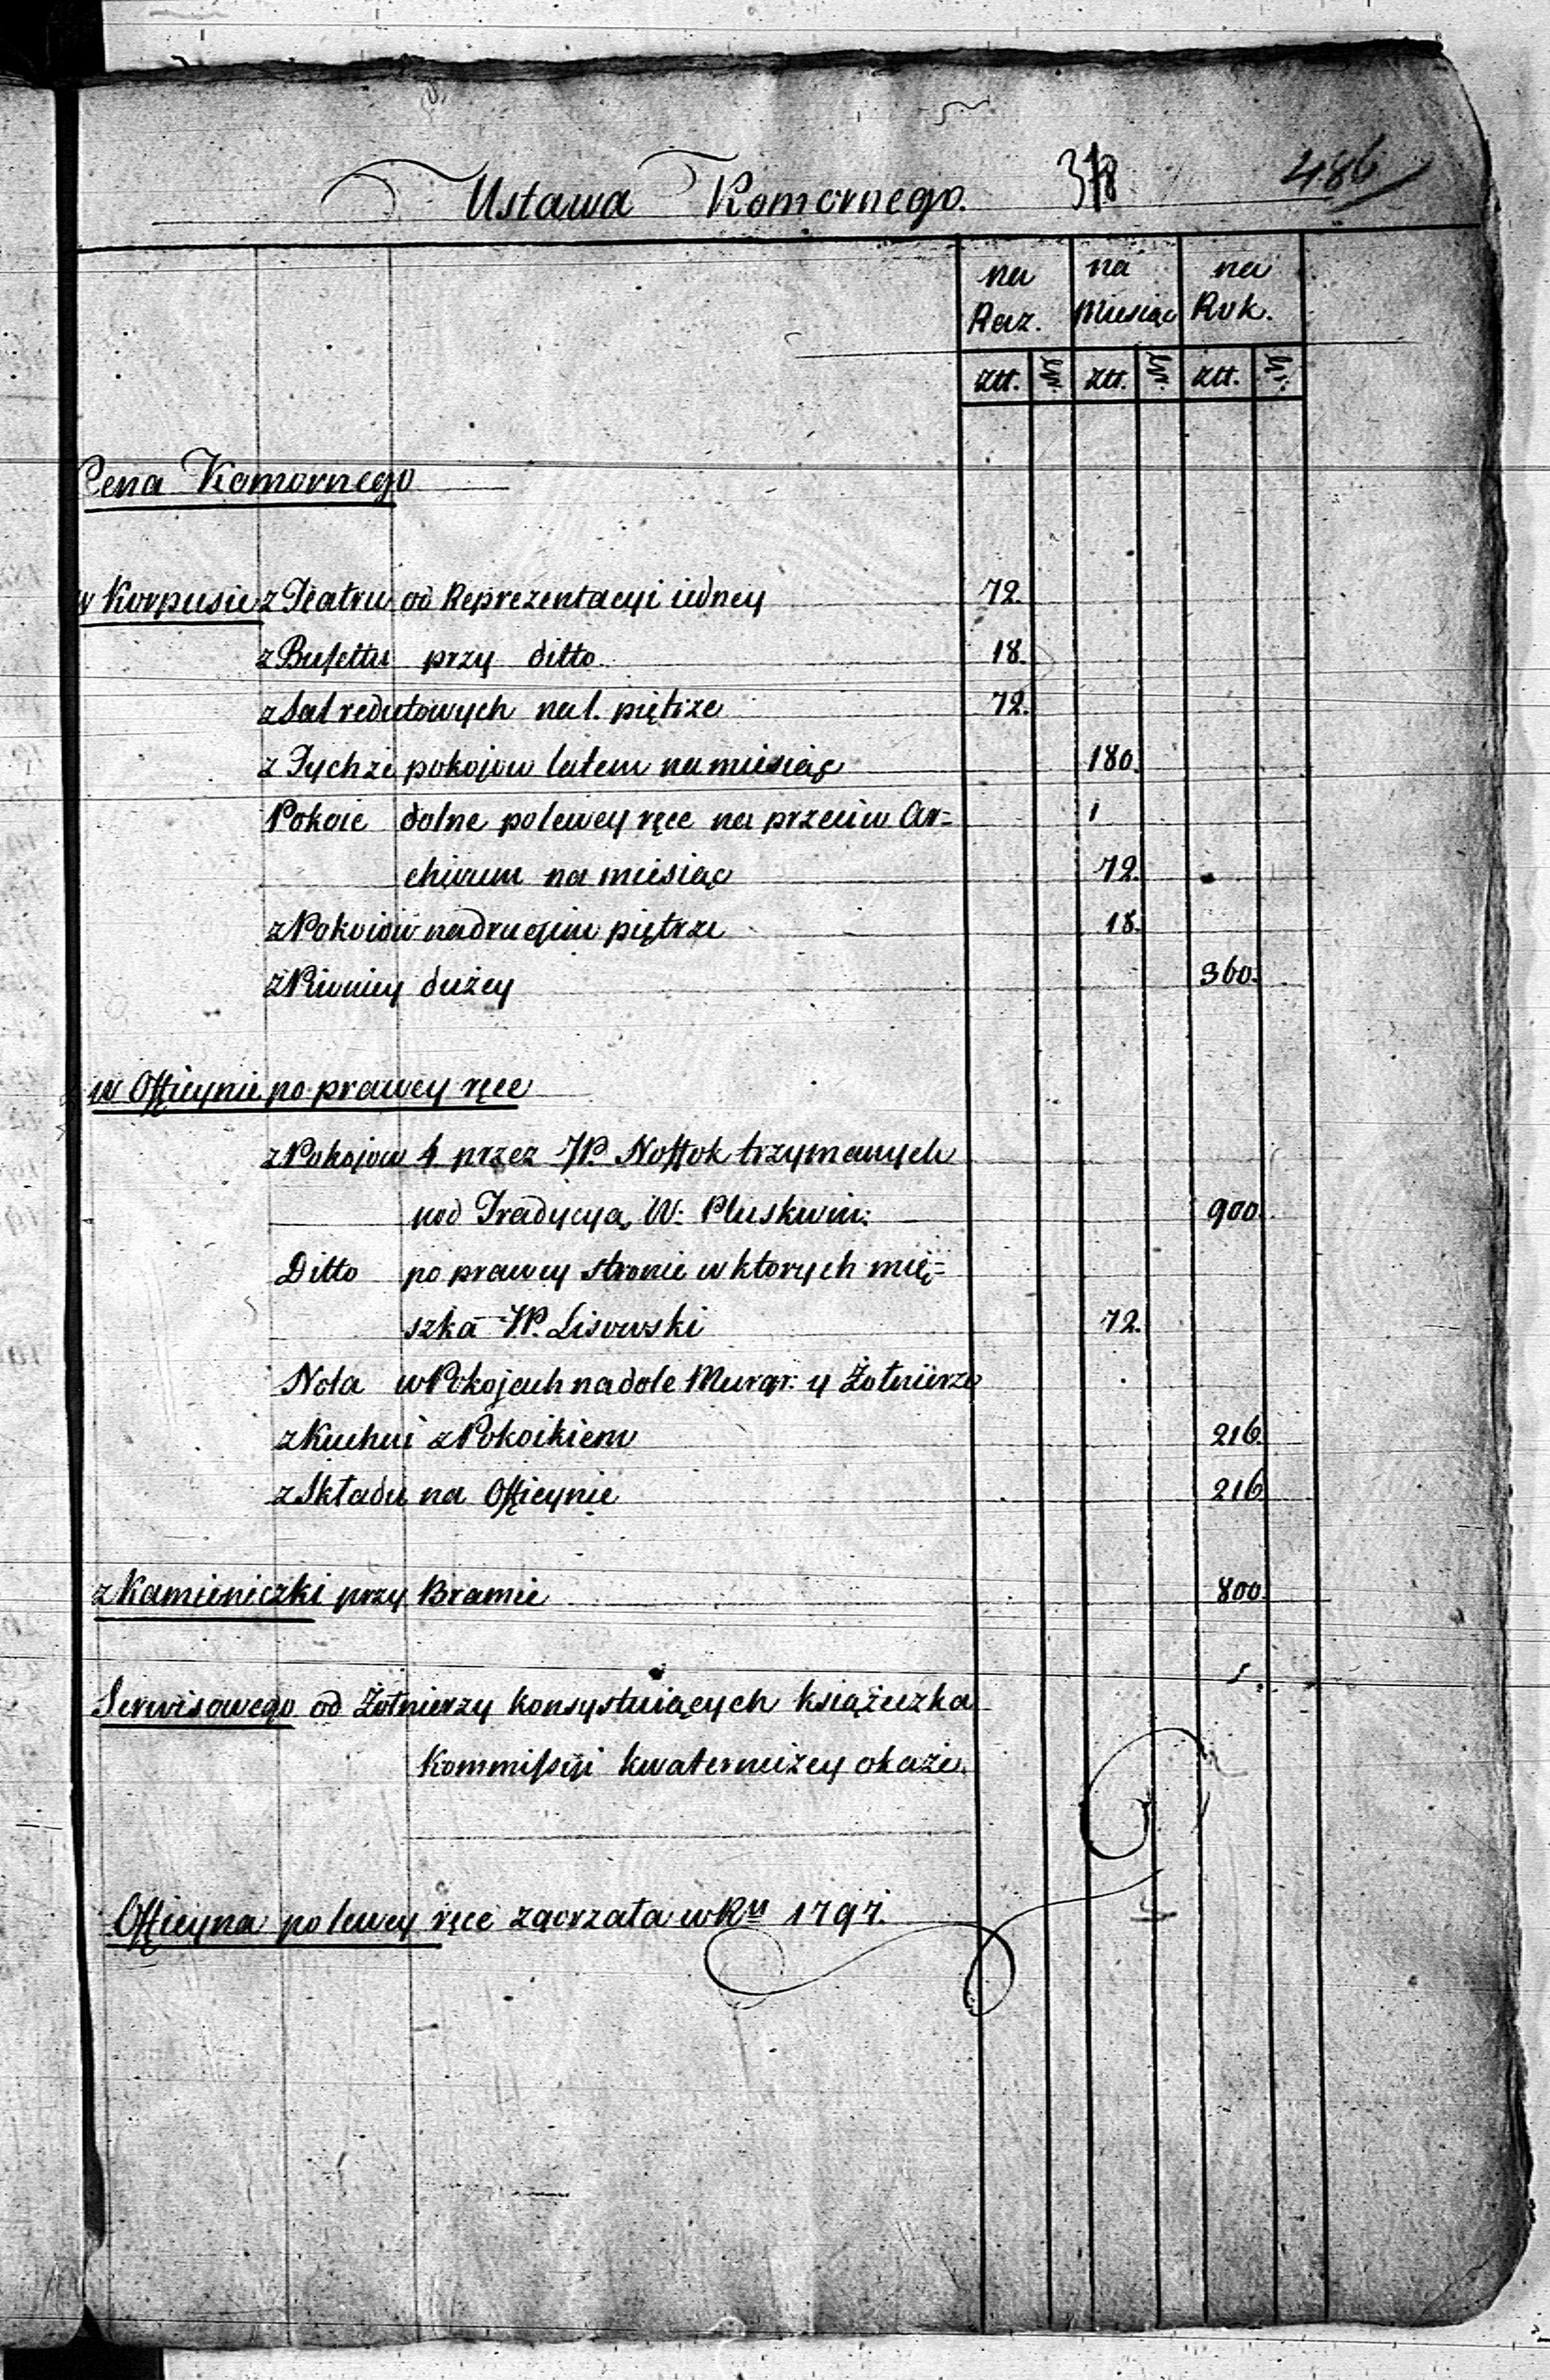 Ustawa Komornego. 378 486
na Raz. na Miesiąc na Rok.
Złł. gr. Złł. gr. Złł. gr.
Cena Komornego
w Korpusie z Teatru od Reprezentacyi iedney 72.
z Bufettu przy ditto 18.
z Sal redutowych na 1. piętrze 72.
z Tychże pokojow latem na miesiąc 180.
Pokoie dolne po lewey ręce na przeciw Ar=
chiwum na miesiąc 72.
z Pokoiow na drugim piętrze 18.
z Piwnicy dużey 360.
w Officynie po prawey ręce
z Pokojow 4 przez JP. Nossok trzymanych
pod Tradycyą W: Pluskwin: 900.
Ditto po prawey stronie w ktorych mię=
szka JP. Lisowski 72.
Nota w Pokojach na dole Murgr: y Żołnierze
z Kuchni z Pokoikiem 216.
z Składu na Officynie 216
z Kamieniczki przy Bramie 800.
Serwisowego od Żołnierzy konsystuiących książeczka
Kommissyi kwaterniczey okaże.
Officyna po lewey ręce zgorzała w Ru 1797.